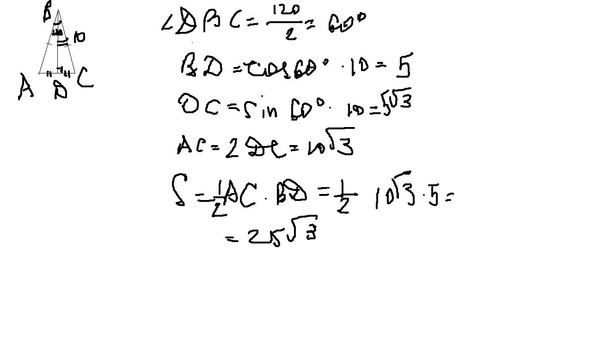 B
10
A D C
∠DBC = 120/2 = 60°
BD = cos60° · 10 = 5
DC = sin 60° · 10 = 5√3
AC = 2 DC = 10√3
S = 1/2 AC · BD = 1/2 10√3 · 5 =
= 25√3